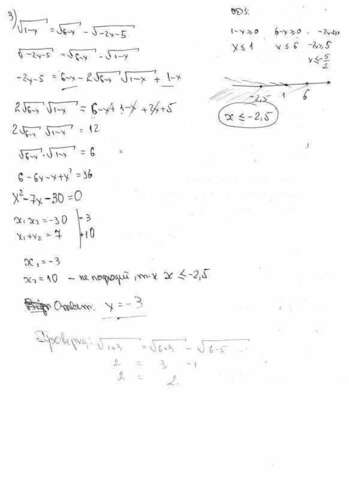 3) √(1-x) = √(6-x) - √(-2x-5)
√(-2x-5) = √(6-x) - √(1-x)
-2x-5 = 6-x - 2√(6-x) √(1-x) + 1-x
2√(6-x) √(1-x) = 6-x+1-x+2x+5
2√(6-x) √(1-x) = 12
√(6-x) · √(1-x) = 6
6-6x-x+x² = 36
x²-7x-30=0
x₁x₂=-30 | -3
x₁+x₂=7 | +10
x₁=-3
x₂=10 - не подходит, т-к x ≤ -2,5
Ответ: x=-3
Проверка: √(1+3) = √(6+3) - √(6-5)
2 = 3 -1
2 = 2
ОДЗ:
1-x≥0 6-x≥0
x≤1 x≤6 -2x≥5
x≤-5/2
-2,5 1 6
x ≤ -2,5